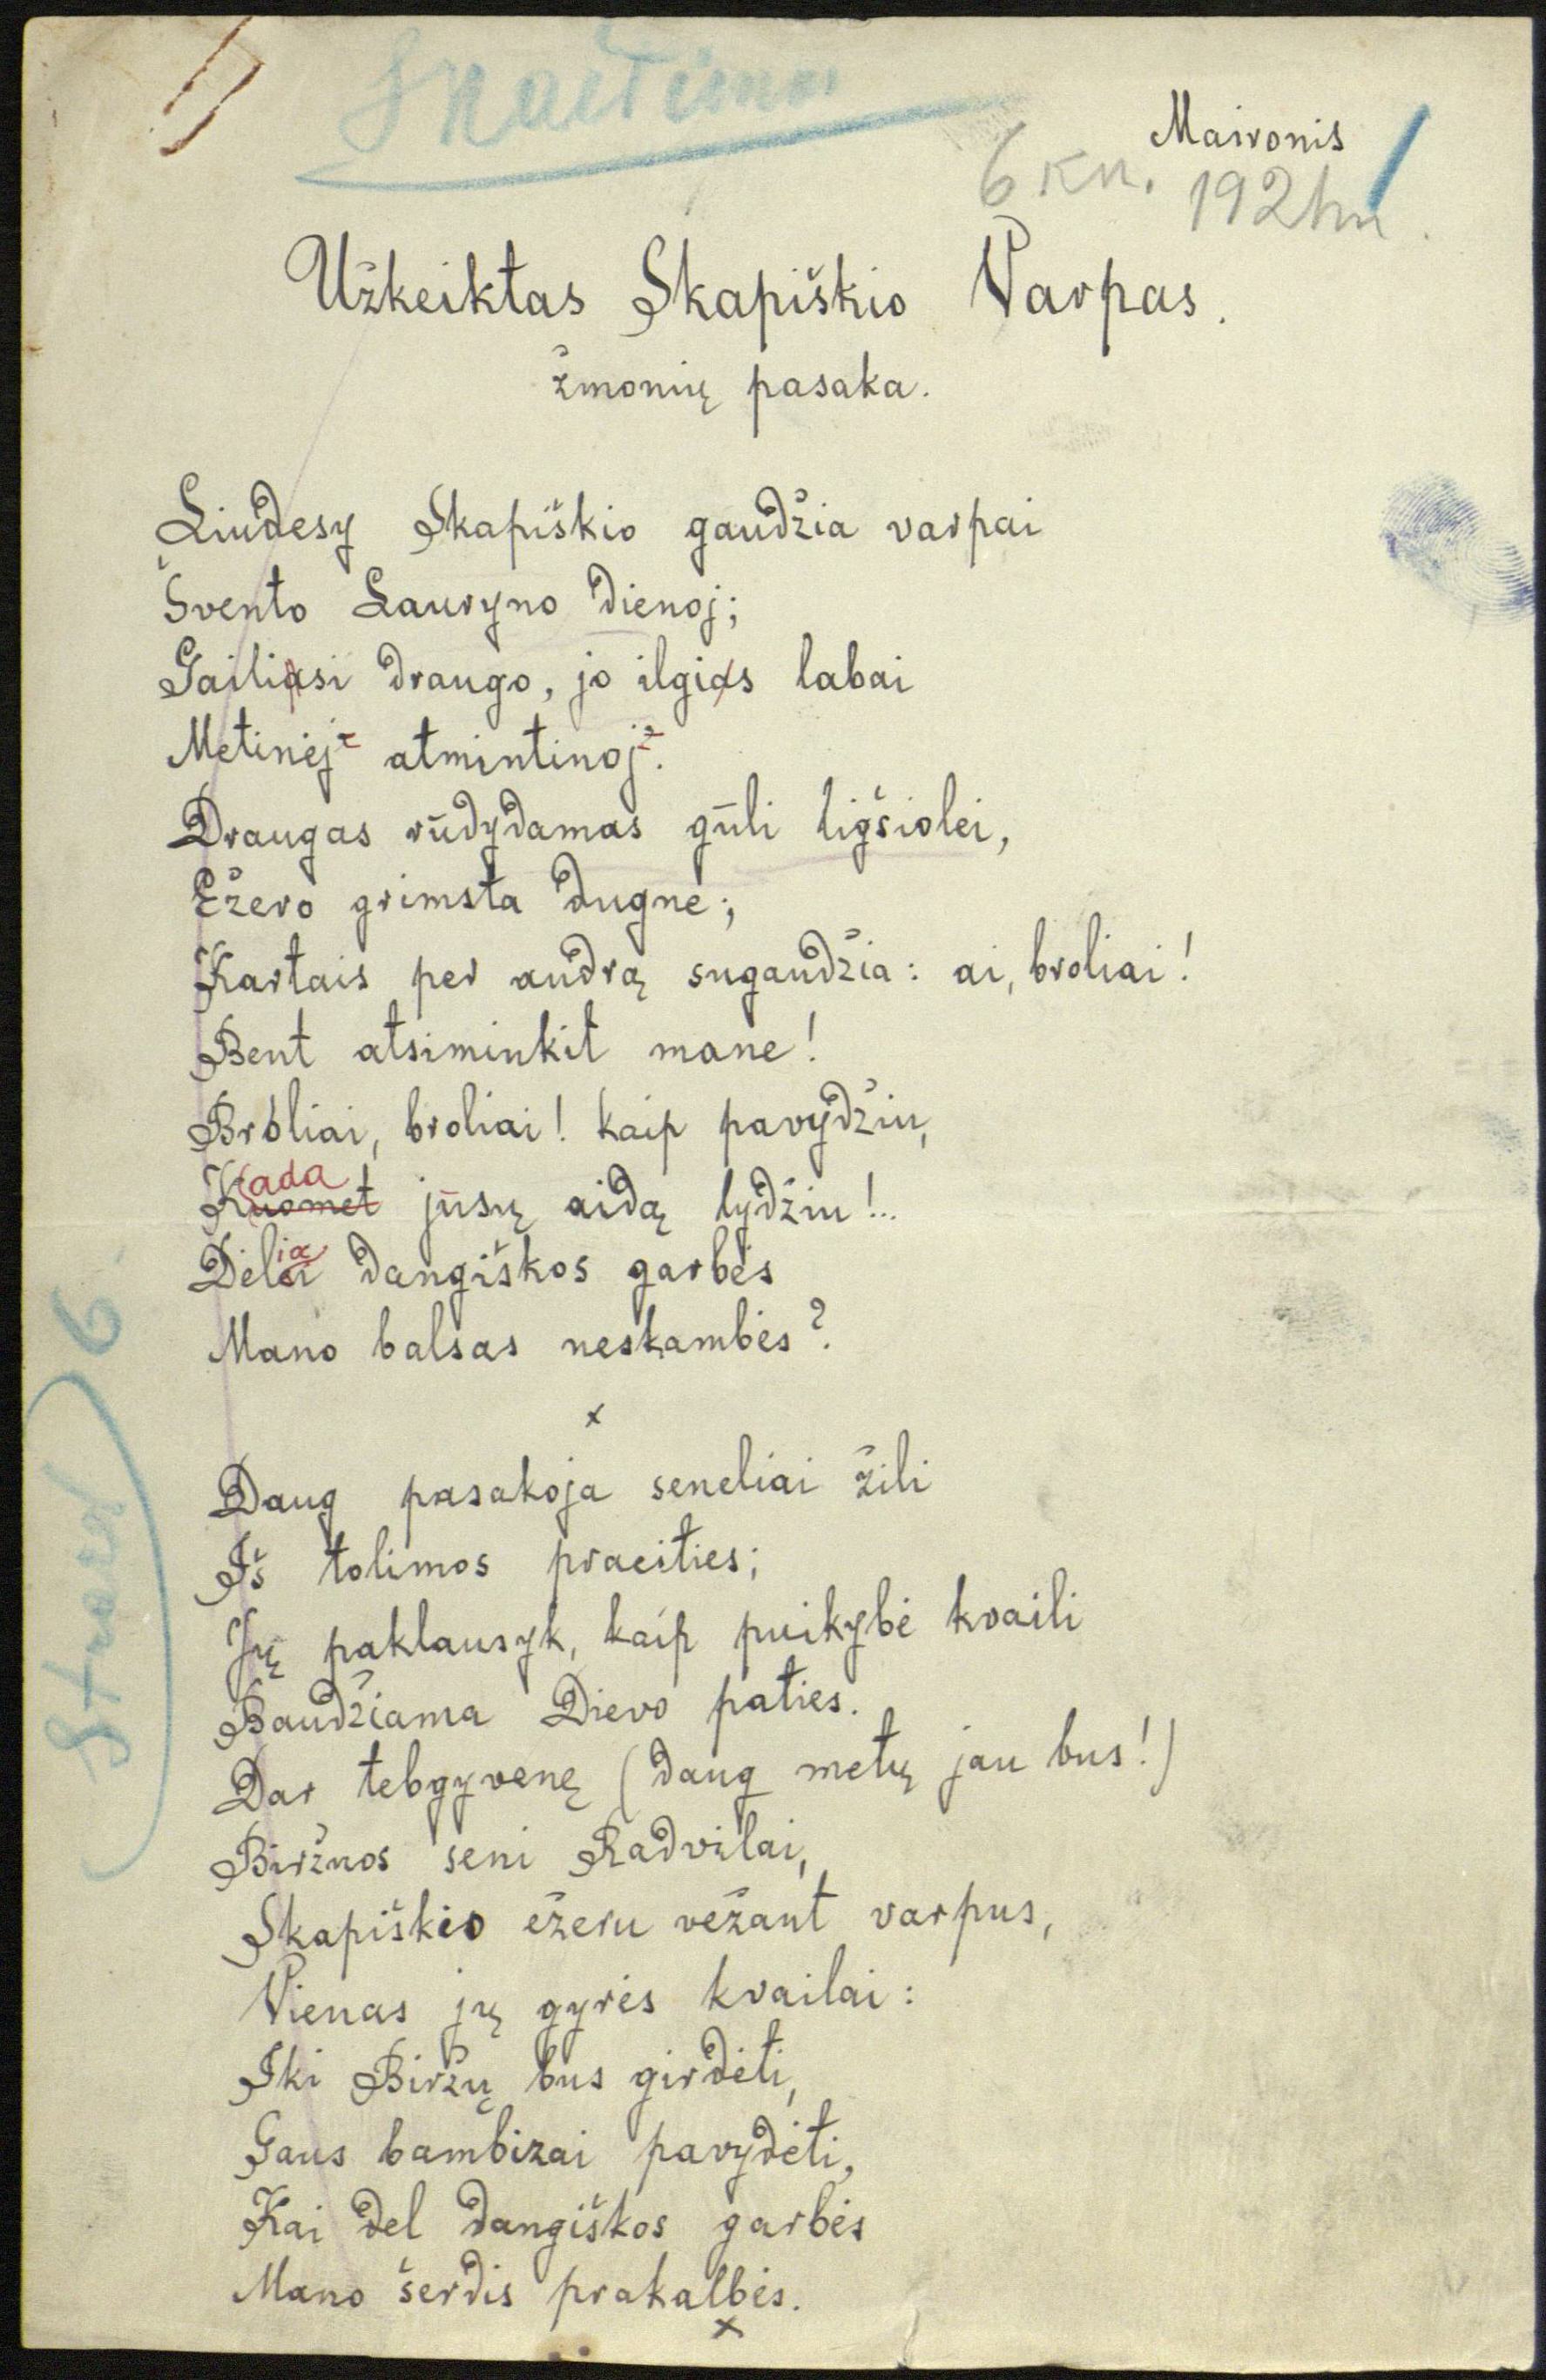 Skaitimas
Maironis
6 кн. 192
Užkeiktas Skapiškio Varpas.
žmonių pasaka.
Liūdesy Skapiškio gaudžia varpai
Švento Lauryno dienoj;
Gailiasi draugo, jo ilgias labai
Metinėj atmintinoj.
Draugas rūdydamas gūli ligšiolei,
Ežero grimsta dugne;
Kartais per audrą sugaudžia: ai, broliai!
Bent atsiminkit mane!
Broliai, broliai! kaip pavydžiu,
ada
Kuomet jūsų aidą lydžiu!..
ia
Delei dangiškos garbės
Mano balsas neskambės?
x
Daug pasakoja seneliai žili
Iš tolimos praeities;
Jų paklausyk, kaip puikybė kvaili
Baudžiama Dievo paties.
Dar tebgyvenę (daug metų jau bus!)
Biržuos seni Radvilai,
Skapiškio ežeru vežant varpus,
Vienas jų gyrės kvailai:
Iki Biržų bus girdėti,
Gaus bambizai pavydėti,
Kai del dangiškos garbės
Mano šerdis prakalbės.
x
6